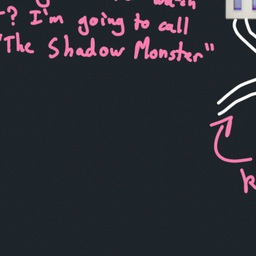 ? I'm going to call
"The Shadow Monster"
k